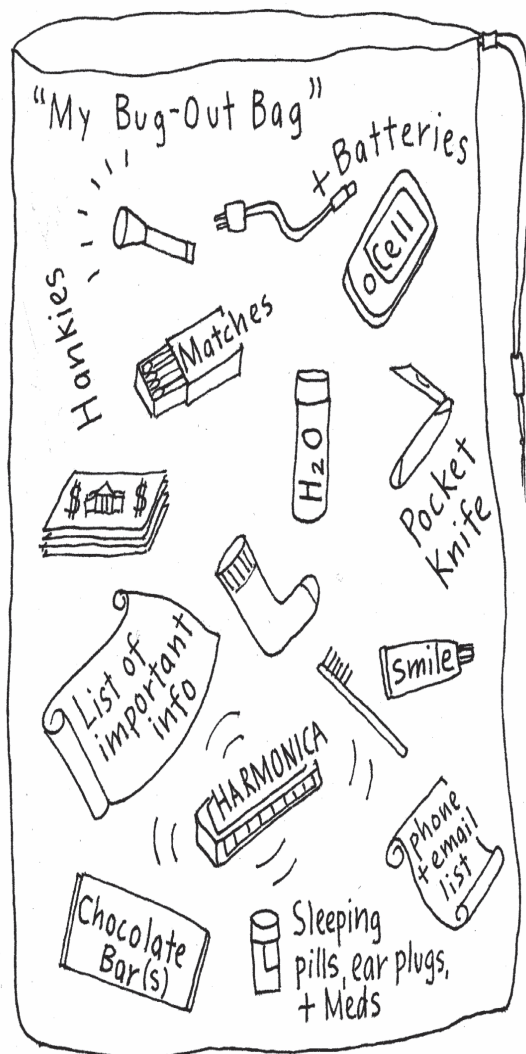 "My Bug-Out Bag"
+ Batteries
Cell
Hankies
Matches
H2O
Pocket
Knife
$ $
List of
important
info
smile
HARMONICA
phone
+ email
list
Chocolate
Bar(s)
Sleeping
pills, ear plugs,
+ Meds